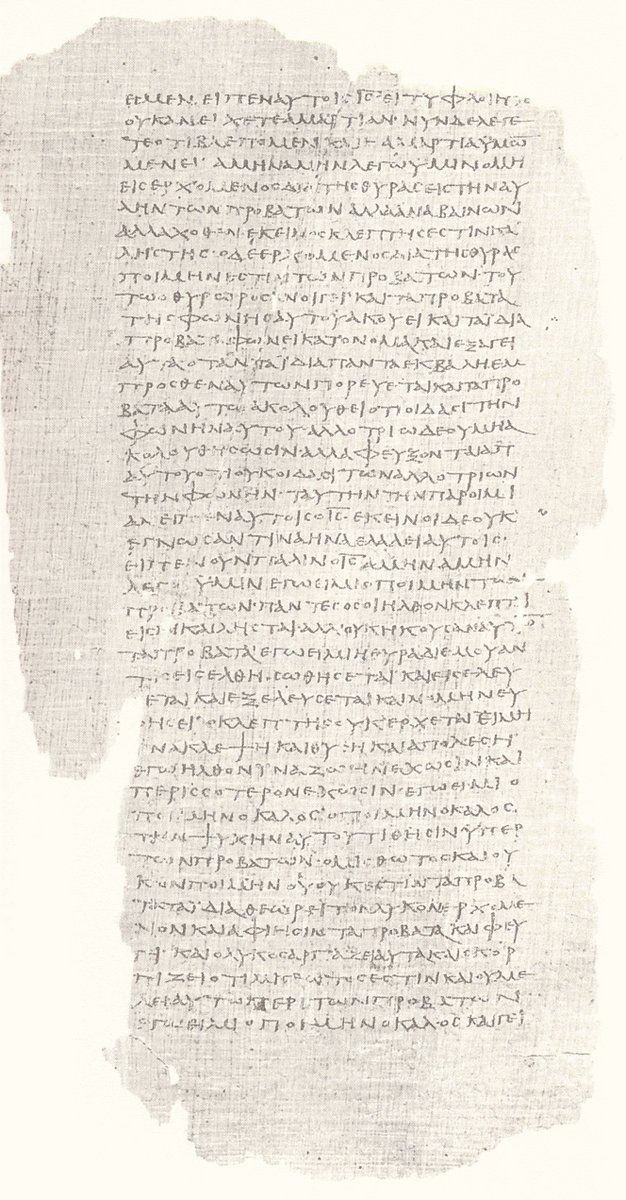 ΕϹΜΕΝ·ΕΙΠΕΝΑΥΤΟΙϹΙ̅Ϲ̅ΕΙΤΥΦΛΟΙΗ
ΟΥΚΑΝΕΙΧΕΤΕΑΜΑΡΤΙΑΝ·ΝΥΝΔΕΛΕΓΕ
ΤΕΟΤΙΒΛΕΠΟΜΕΝΚΑΙΗΑΜΑΡΤΙΑΫΜΩ̅
ΜΕΝΕΙ·ΑΜΗΝΑΜΗΝΛΕΓΩΫΜΙΝΟΜΗ
ΕΙϹΕΡΧΟΜΕΝΟϹΔΙΑΤΗϹΘΥΡΑϹΕΙϹΤΗΝΑΥ
ΛΗΝΤΩΝΠΡΟΒΑΤΩΝΑΛΛΑΑΝΑΒΑΙΝΩΝ
ΑΛΛΑΧΟΘΕΝ·ΕΚΕΙΝΟϹΚΛΕΠΤΗϹΕϹΤΙΝΚΑΙ
ΛΗϹΤΗϹ·ΟΔΕΕΡΧΟΜΕΝΟϹΔΙΑΤΗϹΘΥΡΑϹ
ΠΟΙΜΗΝΕϹΤΙΝΤΩΝΠΡΟΒΑΤΩΝ·ΤΟΥ
ΤΩΟΘΥΡΩΡΟϹΑΝΟΙΓΕΙΚΑΙΤΑΠΡΟΒΑΤΑ
ΤΗϹΦΩΝΗϹΑΥΤΟΥΑΚΟΥΕΙΚΑΙΤΑΪΔΙΑ
ΠΡΟΒΑΤΑΦΩΝΕΙΚΑΤΟΝΟΜΑΚΑΙΕΞΑΓΕΙ
ΑΥΤΑΟΤΑΝΤΑΪΔΙΑΠΑΝΤΑΕΚΒΑΛΗΕΜ
ΠΡΟϹΘΕΝΑΥΤΩΝΠΟΡΕΥΕΤΑΙΚΑΙΤΑΠΡΟ
ΒΑΤΑΑΥΤΩΑΚΟΛΟΥΘΕΙΟΤΙΟΙΔΑϹΙΤΗΝ
ΦΩΝΗΝΑΥΤΟΥ·ΑΛΛΟΤΡΙΩΔΕΟΥΜΗΑ
ΚΟΛΟΥΘΗϹΩϹΙΝ·ΑΛΛΑΦΕΥΞΟΝΤΑΙΑΠ
ΑΥΤΟΥΟΤΙΟΥΚΟΙΔΑϹΙΤΩΝΑΛΛΟΤΡΙΩΝ
ΤΗΝΦΩΝΗΝ·ΤΑΥΤΗΝΤΗΝΠΑΡΟΙΜΙ
ΑΝΕΙΠΕΝΑΥΤΟΙϹΟΙ̅Ϲ̅·ΕΚΕΙΝΟΙΔΕΟΥΚ
ΕΓΝΩϹΑΝΤΙΝΑΗΝΑΕΛΑΛΕΙΑΥΤΟΙϹ·
ΕΙΠΕΝΟΥΝΠΑΛΙΝΟΙ̅Ϲ̅ΑΜΗΝΑΜΗΝ
ΛΕΓΩΫΜΙΝΕΓΩΕΙΜΙΟΠΟΙΜΗΝΤΩ
ΠΡΟΒΑΤΩΝ·ΠΑΝΤΕϹΟϹΟΙΗΛΘΟΝΚΛΕΠΤΑΙ
ΕΙϹΙΝΚΑΙΛΗϹΤΑΙ·ΑΛΛΟΥΚΗΚΟΥϹΑΝΑΥ
ΤΑΠΡΟΒΑΤΑ·ΕΓΩΕΙΜΙΗΘΥΡΑΔΙΕΜΟΥΑΝ
ΤΙϹΕΙϹΕΛΘΗ·ϹΩΘΗϹΕΤΑΙΚΑΙΕΙϹΕΛΕΥ
ϹΕΤΑΙΚΑΙΕΞΕΛΕΥϹΕΤΑΙΚΑΙΝΟΜΗΝΕΥ
ΡΗϹΕΙ·ΟΚΛΕΠΤΗϹΟΥΚΕΡΧΕΤΑΙΕΙΜΗ
ΪΝΑΚΛΕΨΗΚΑΙΘΥϹΗΚΑΙΑΠΟΛΕϹΗ·
ΕΓΩΗΛΘΟΝΪΝΑΖΩΗΝΕΧΩϹΙΝΚΑΙ
ΠΕΡΙϹϹΟΤΕΡΟΝΕΧΩϹΙΝ·ΕΓΩΕΙΜΙΟ
ΠΟΙΜΗΝΟΚΑΛΟϹ·ΟΠΟΙΜΗΝΟΚΑΛΟϹ
ΤΗΝΨΥΧΗΝΑΥΤΟΥΤΙΘΗϹΙΝΫΠΕΡ
ΤΩΝΠΡΟΒΑΤΩΝ·ΟΜΙϹΘΩΤΟϹΚΑΙΟΥ
ΚΩΝΠΟΙΜΗΝΟΥΟΥΚΕϹΤΙΝΤΑΠΡΟΒΑ
ΤΑΪΔΙΑΘΕΩΡΕΙΤΟΝΛΥΚΟΝΕΡΧΟΜΕ
ΝΟΝΚΑΙΑΦΙΗϹΙΝΤΑΠΡΟΒΑΤΑΚΑΙΦΕΥ
ΓΕΙΚΑΙΟΛΥΚΟϹΑΡΠΑΖΕΙΑΥΤΑΚΑΙϹΚΟΡ
ΠΙΖΕΙΟΤΙΜΙϹΘΩΤΟϹΕϹΤΙΝΚΑΙΟΥΜΕ
ΛΕΙΑΥΤΩΠΕΡΙΤΩΝΠΡΟΒΑΤΩΝ
ΕΓΩΕΙΜΙΟΠΟΙΜΗΝΟΚΑΛΟϹΚΑΙΓΕΙ